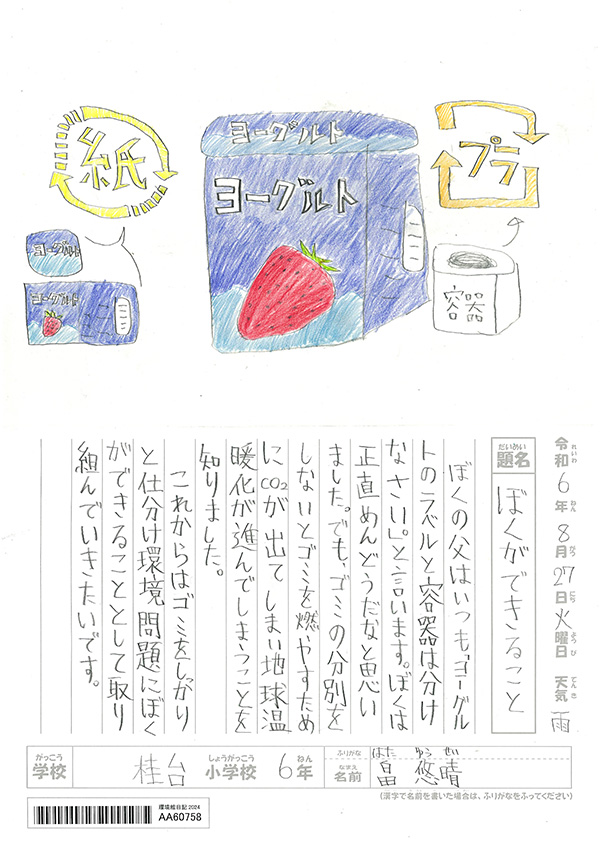 紙
ヨーグルト
ヨーグルト
プラ
ヨーグルト
ヨーグルト
容器
令和6年8月27日火曜日 天気 雨
れいわ ねん がつ にち ようび てんき
だいめい
題名
ぼくができること
ぼくの父はいつも、「ヨーグル
トのラベルと容器は分け
なさい」と言います。ぼくは
正直めんどうだなと思い
ました。でも、ゴミの分別を
しないとゴミを燃やすため
にCO2が出てしまい地球温
暖化が進んでしまうことを
知りました。
これからはゴミをしっかり
と仕分け環境問題にぼく
ができることとして取り
組んでいきたいです。
がっこう しょうがっこう ねん
学校 桂台 小学校 6年
ふりがな はた ゆうせい
なまえ
名前 畠 悠晴
(漢字で名前を書いた場合は、ふりがなをふってください)
環境絵日記2024
AA60758